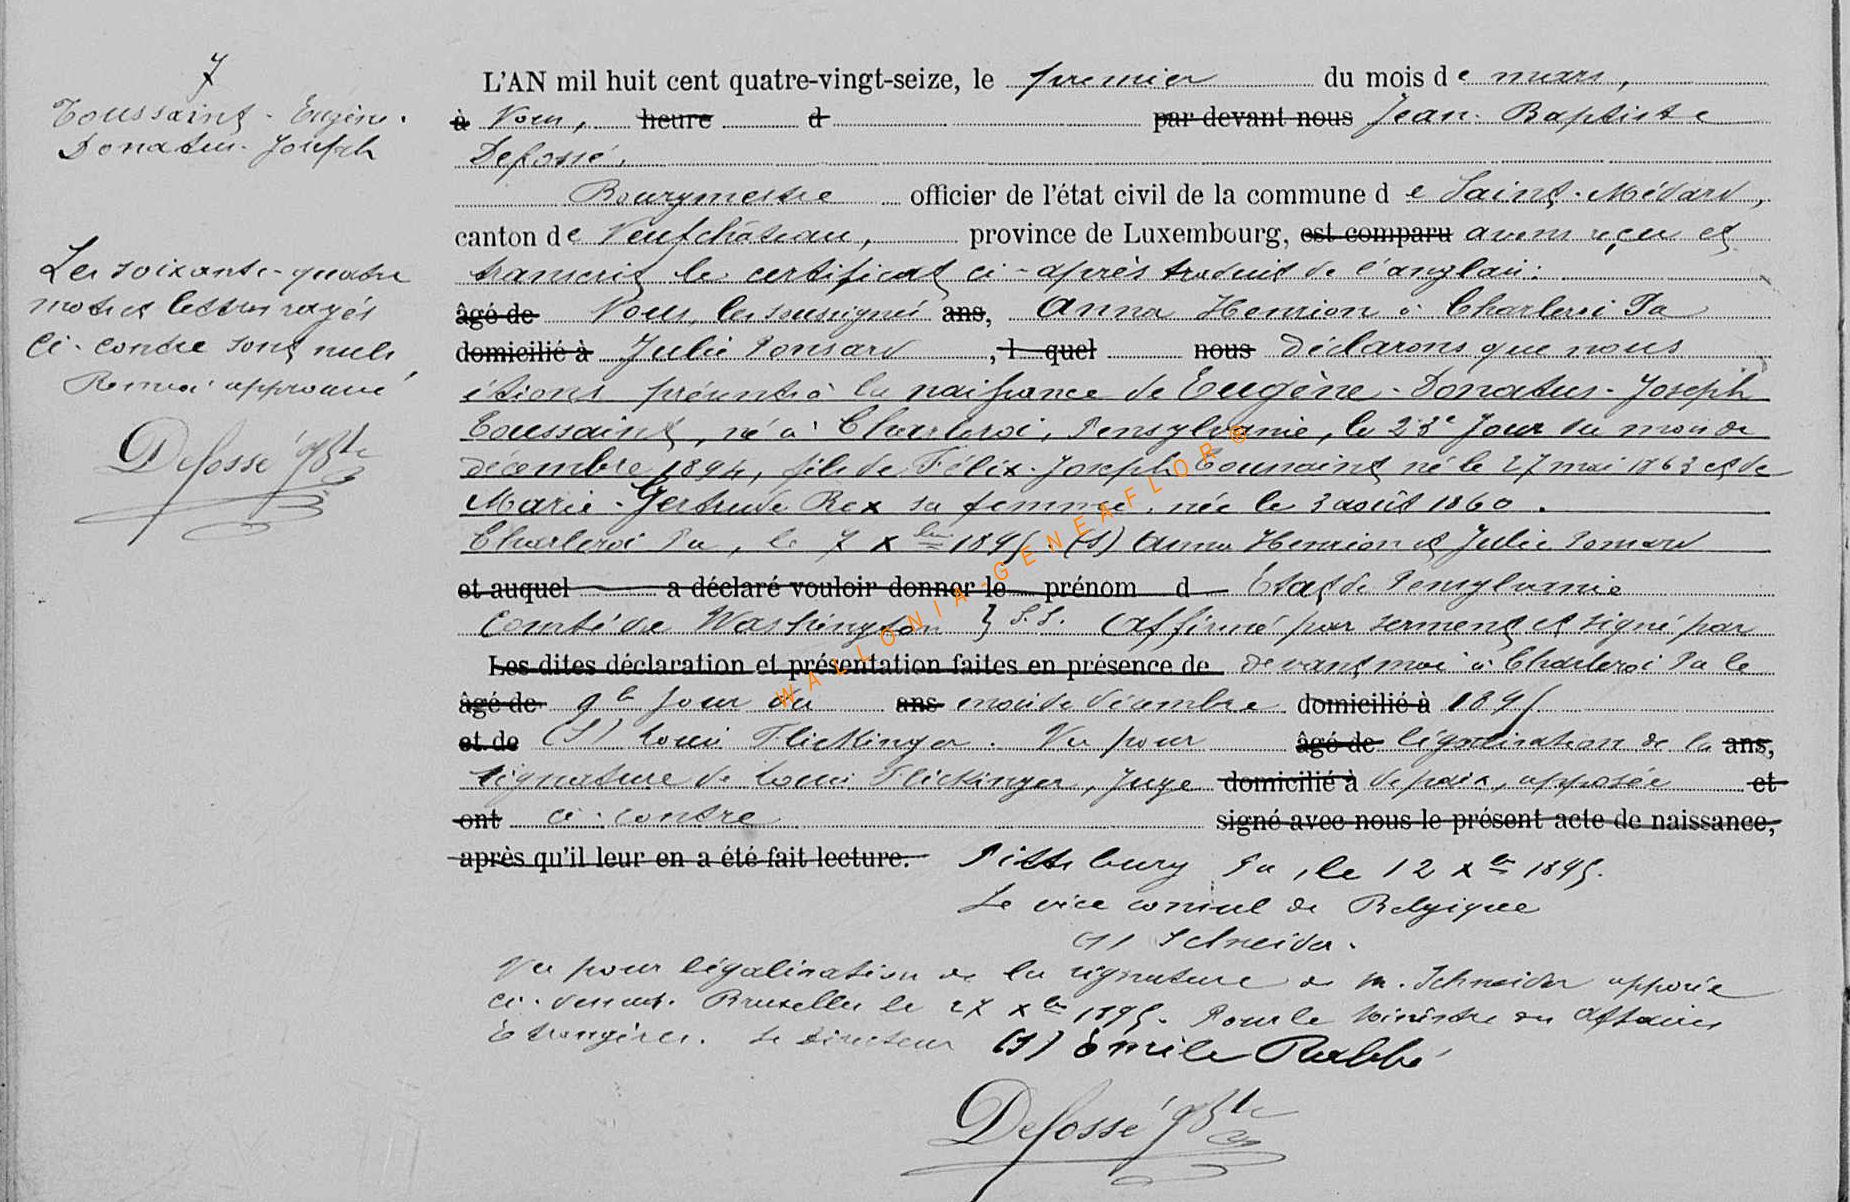 7
Toussaint - Eugène -
Donatus - Joseph
Les soixante-quatre
mots et lettres rayés
ci-contre sont nuls,
Renvoi approuvé
Defossé JBte
L'AN mil huit cent quatre-vingt-seize, le premier du mois de mars,
à Nous, heure d par devant nous Jean-Baptiste
Defossé,
Bourgmestre officier de l'état civil de la commune de Saint-Médard,
canton de Neufchâteau, province de Luxembourg, est comparu avons reçu et
transcrit le certificat ci-après traduit de l'anglais:
âgé de Nous, les soussignés ans, Anna Henrion à Charleroi Pa
domicilié à Julie Ponsard, l quel nous déclarons que nous
étions présents à la naissance de Eugène-Donatus-Joseph
Toussaint, né à Charleroi, Pensylvanie, le 23e Jour du mois de
décembre 1894, fils de Félix-Joseph Toussaint né le 27 mai 1863 et de
Marie-Gertrude Rex sa femme, née le 3 août 1860.
Charleroi Pa, le 7 Xbre 1895. (S) Anna Henrion et Julie Ponsard
et auquel a déclaré vouloir donner le prénom d Etat de Pensylvanie
Comté de Washington } S.S. Affirmé par serment et signé par
Les dites déclaration et présentation faites en présence de devant moi à Charleroi Pa le
âgé de 9e Jour du ans mois de décembre domicilié à 1895
et de (S) Louis Flickinger. Vu pour âgé de légalisation de la ans,
signature de Louis Flickinger, Juge domicilié à de paix, apposée et
ont ci-contre signé avec nous le présent acte de naissance,
après qu'il leur en a été fait lecture. Pittsburg Pa, le 12 Xbre 1895.
Le vice consul de Belgique
(S) Schneider.
Vu pour légalisation de la signature de M. Schneider apposée
ci-dessus. Bruxelles le 27 Xbre 1895. Pour le Ministre des Affaires
Etrangères. Le Directeur (S) Emile Rabbé
Defossé JBte
WALLONIA-GENEAFLOR®